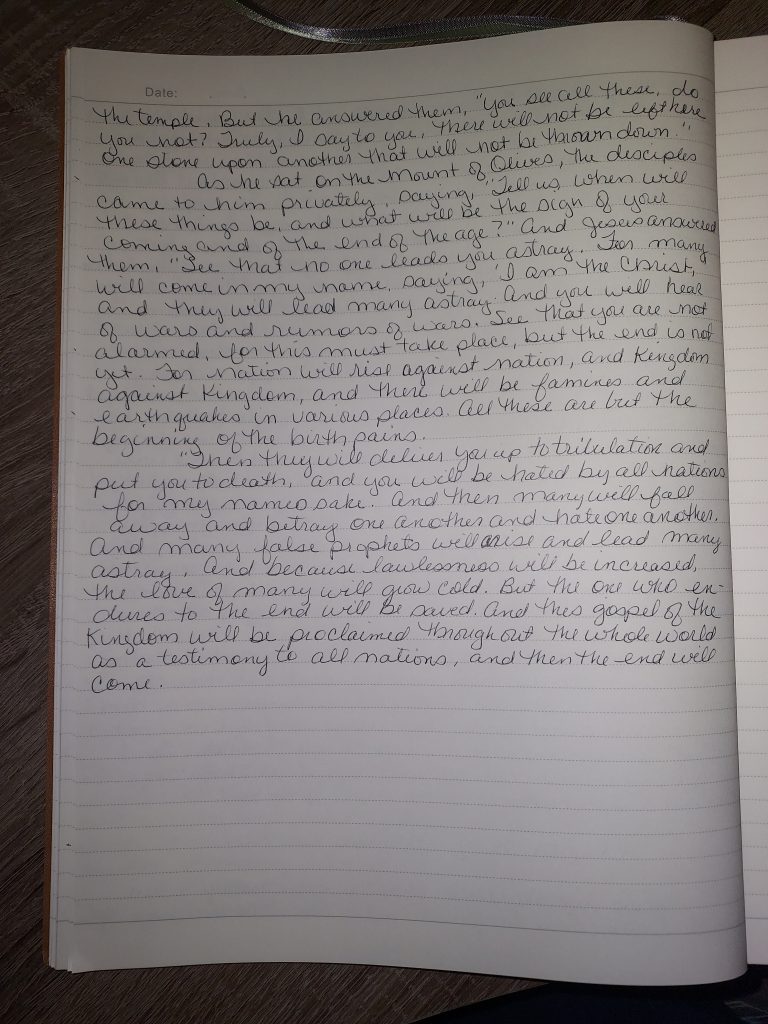 Date:
the temple. But he answered them, "You see all these, do
you not? Truly, I say to you, there will not be left here
one stone upon another that will not be thrown down."
As he sat on the Mount of Olives, the disciples
came to him privately, saying, "Tell us, when will
these things be, and what will be the sign of your
coming and of the end of the age?" And Jesus answered
them, "See that no one leads you astray. For many
will come in my name, saying, 'I am the Christ,
and they will lead many astray. And you will hear
of wars and rumors of wars. See that you are not
alarmed, for this must take place, but the end is not
yet. For nation will rise against nation, and Kingdom
against Kingdom, and there will be famines and
earthquakes in various places. All these are but the
beginning of the birth pains.
"Then they will deliver you up to tribulation and
put you to death, and you will be hated by all nations
for my names sake. And then many will fall
away and betray one another and hate one another.
And many false prophets will arise and lead many
astray. And because lawlessness will be increased,
the love of many will grow cold. But the one who en-
dures to the end will be saved. And this gospel of the
Kingdom will be proclaimed throughout the whole world
as a testimony to all nations, and then the end will
come.